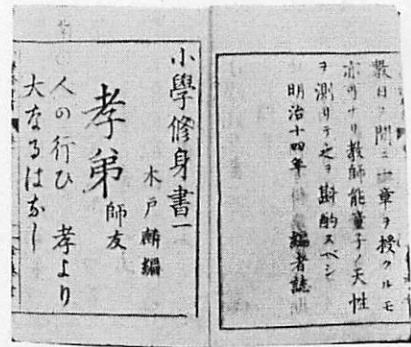 數日ノ間ニ一章ヲ授クルモ
亦可ナリ教師能童子ノ天性
ヲ測リテ之ヲ斟酌スベシ
明治十四年 編者誌
小學修身書一
木戸麟編
孝弟
師友
人の行ひ 孝より
大なるはなし